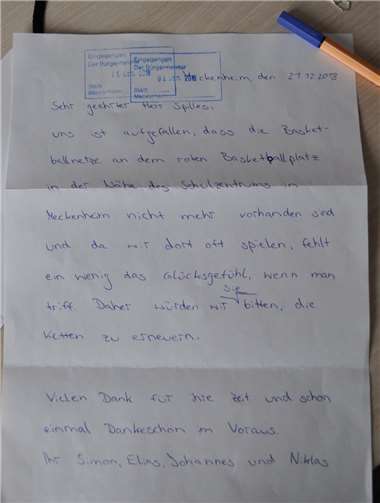 Eingegangen
Der Bürgermeister
Stadt
Meckenheim
Eingegangen
Der Bürgermeister
Stadt
Meckenheim
Meckenheim, den 27.12.2018
Sehr geehrter Herr Spilles,
uns ist aufgefallen, dass die Basket-
ballnetze an dem roten Basketballplatz
in der Nähe des Schulzentrums in
Meckenheim nicht mehr vorhanden sind
und da wir dort oft spielen, fehlt
ein wenig das Glücksgefühl, wenn man
trifft. Daher würden wir Sie bitten, die
Ketten zu erneuern.
Vielen Dank für ihre Zeit und schon
einmal Dankeschön im Voraus.
Ihr Simon, Elias, Johannes und Niklas